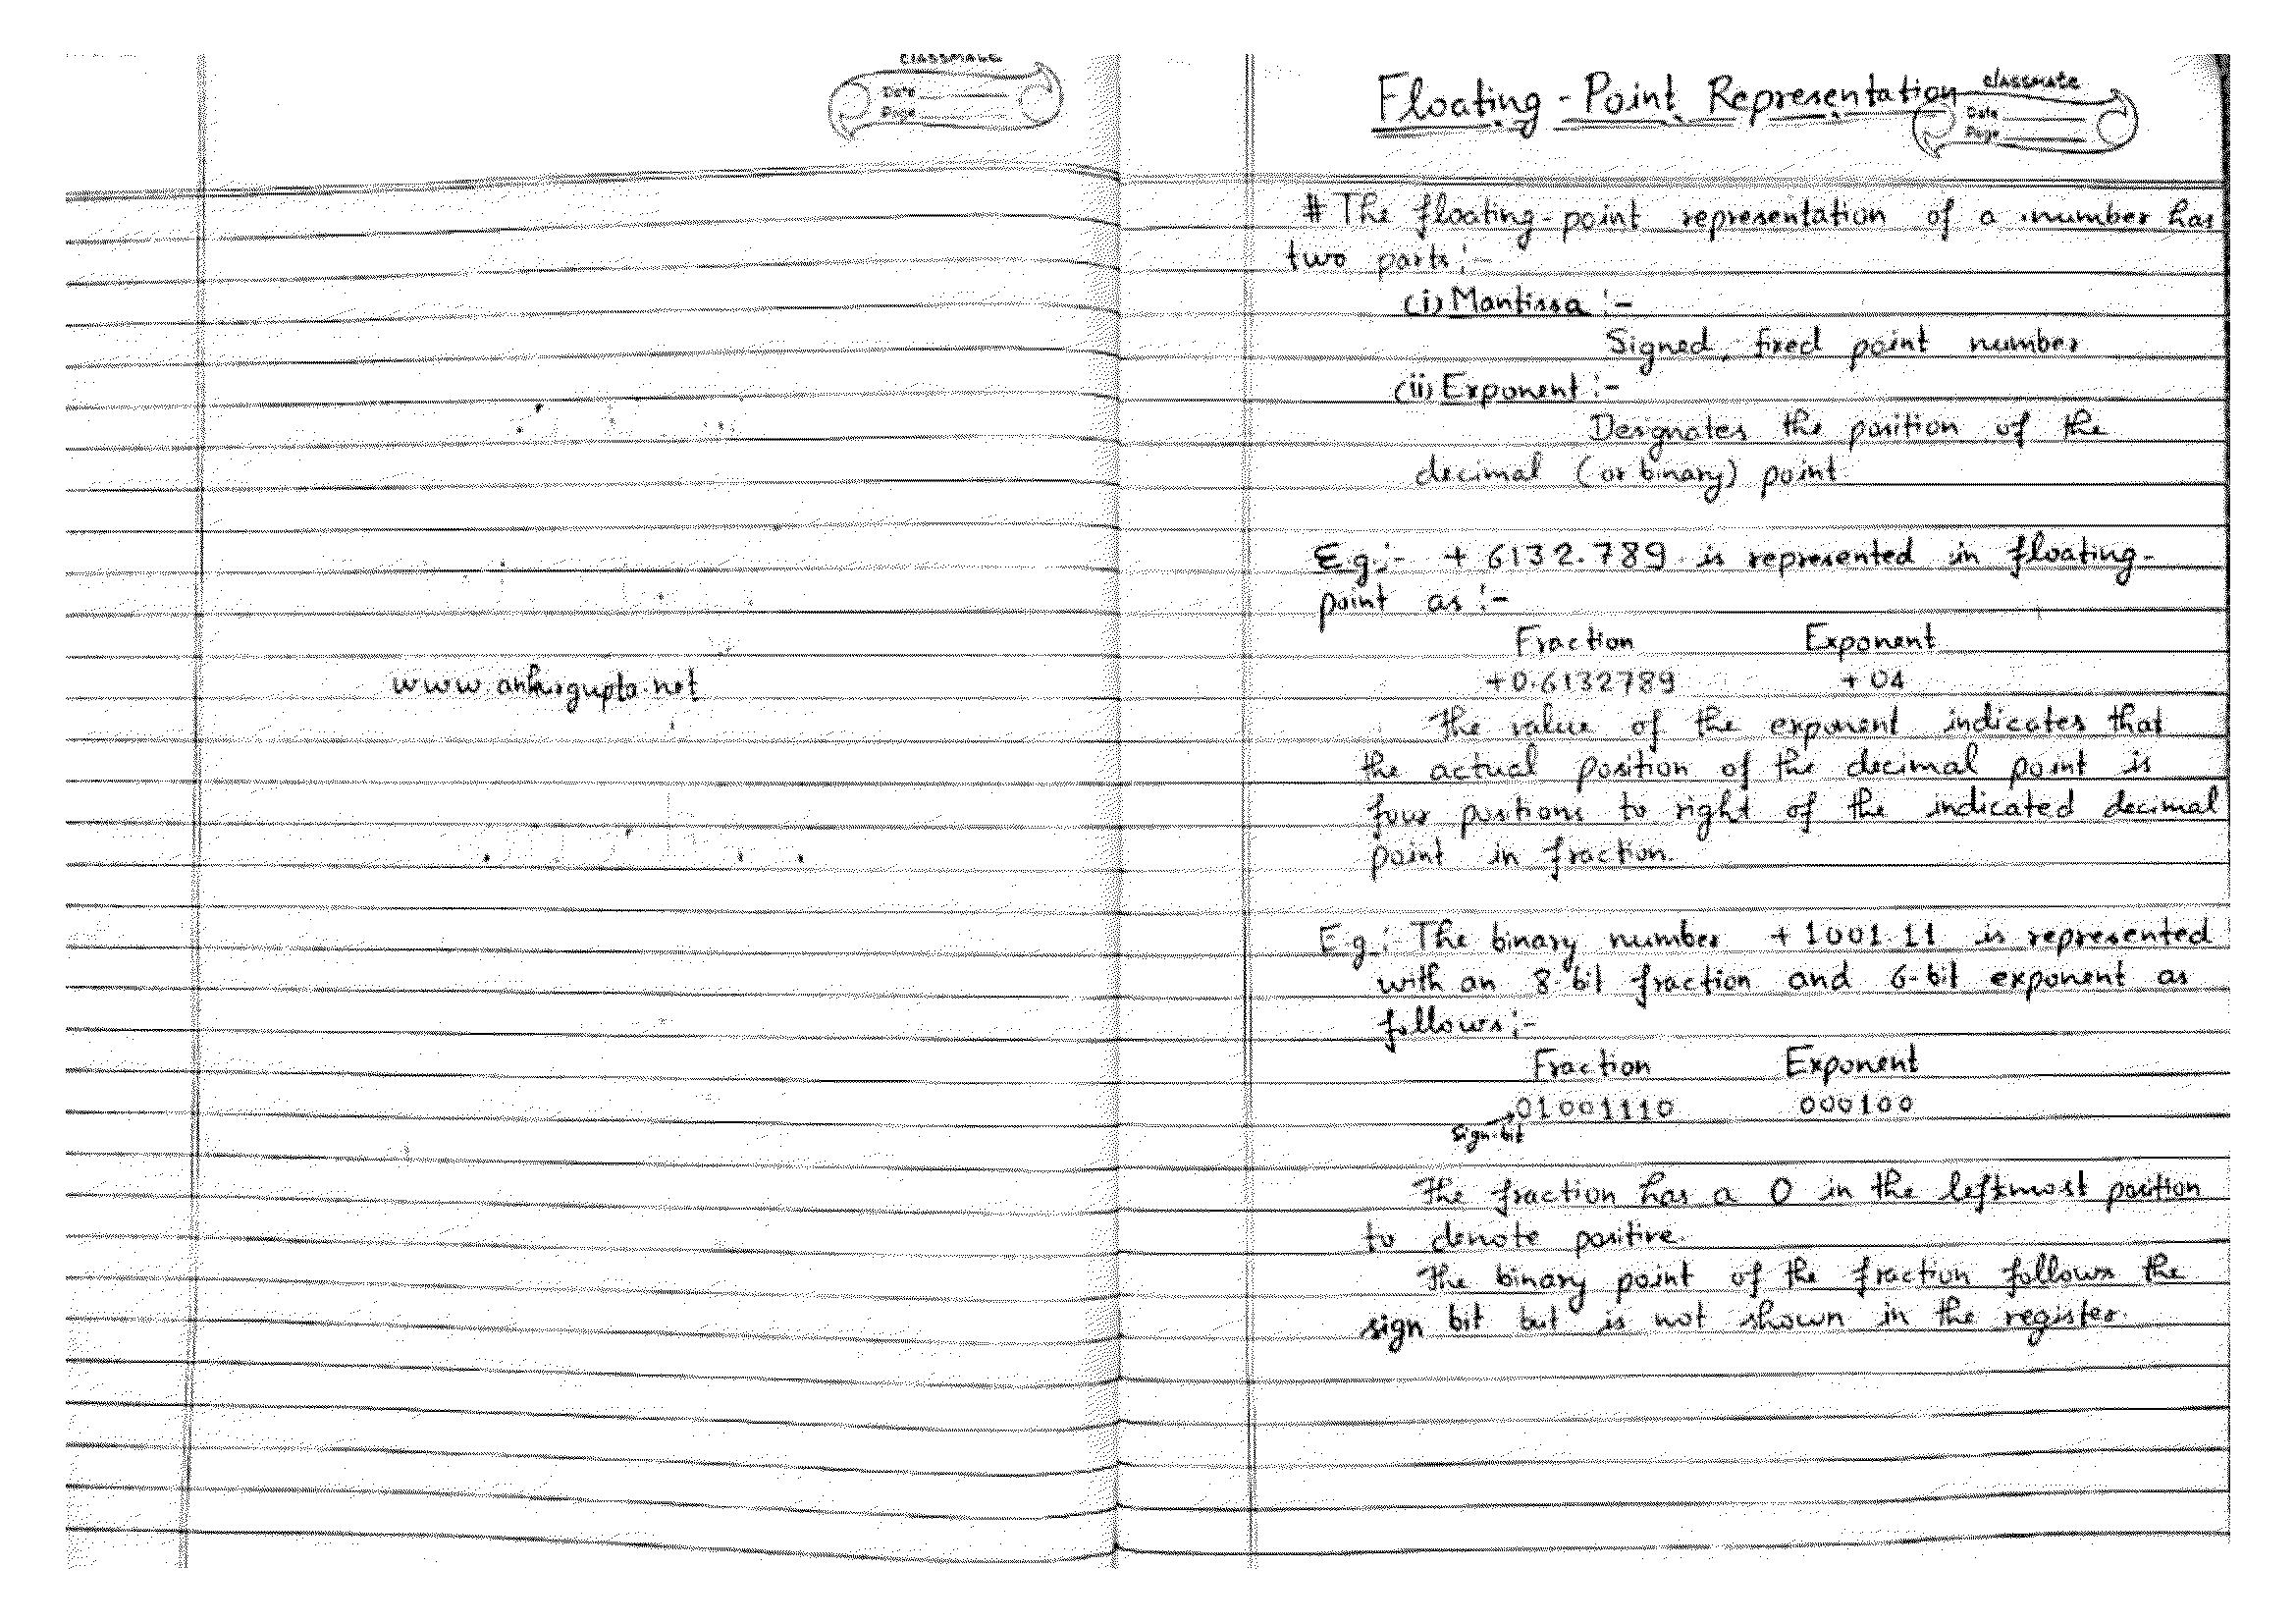 classmate
Date
Page
www.ankurgupta.net
Floating-Point Representation
classmate
Date
Page
# The floating-point representation of a number has
two parts:-
(i) Mantissa :-
Signed, fixed point number
(ii) Exponent :-
Designates the position of the
decimal (or binary) point.
Eg:- + 6132.789 is represented in floating-
point as :-
Fraction Exponent
+0.6132789 +04
The value of the exponent indicates that
the actual position of the decimal point is
four positions to right of the indicated decimal
point in fraction.
Eg: The binary number +1001.11 is represented
with an 8-bit fraction and 6-bit exponent as
follows:-
Fraction Exponent
01001110 000100
Sign-bit
The fraction has a 0 in the leftmost position
to denote positive.
The binary point of the fraction follows the
sign bit but is not shown in the register.